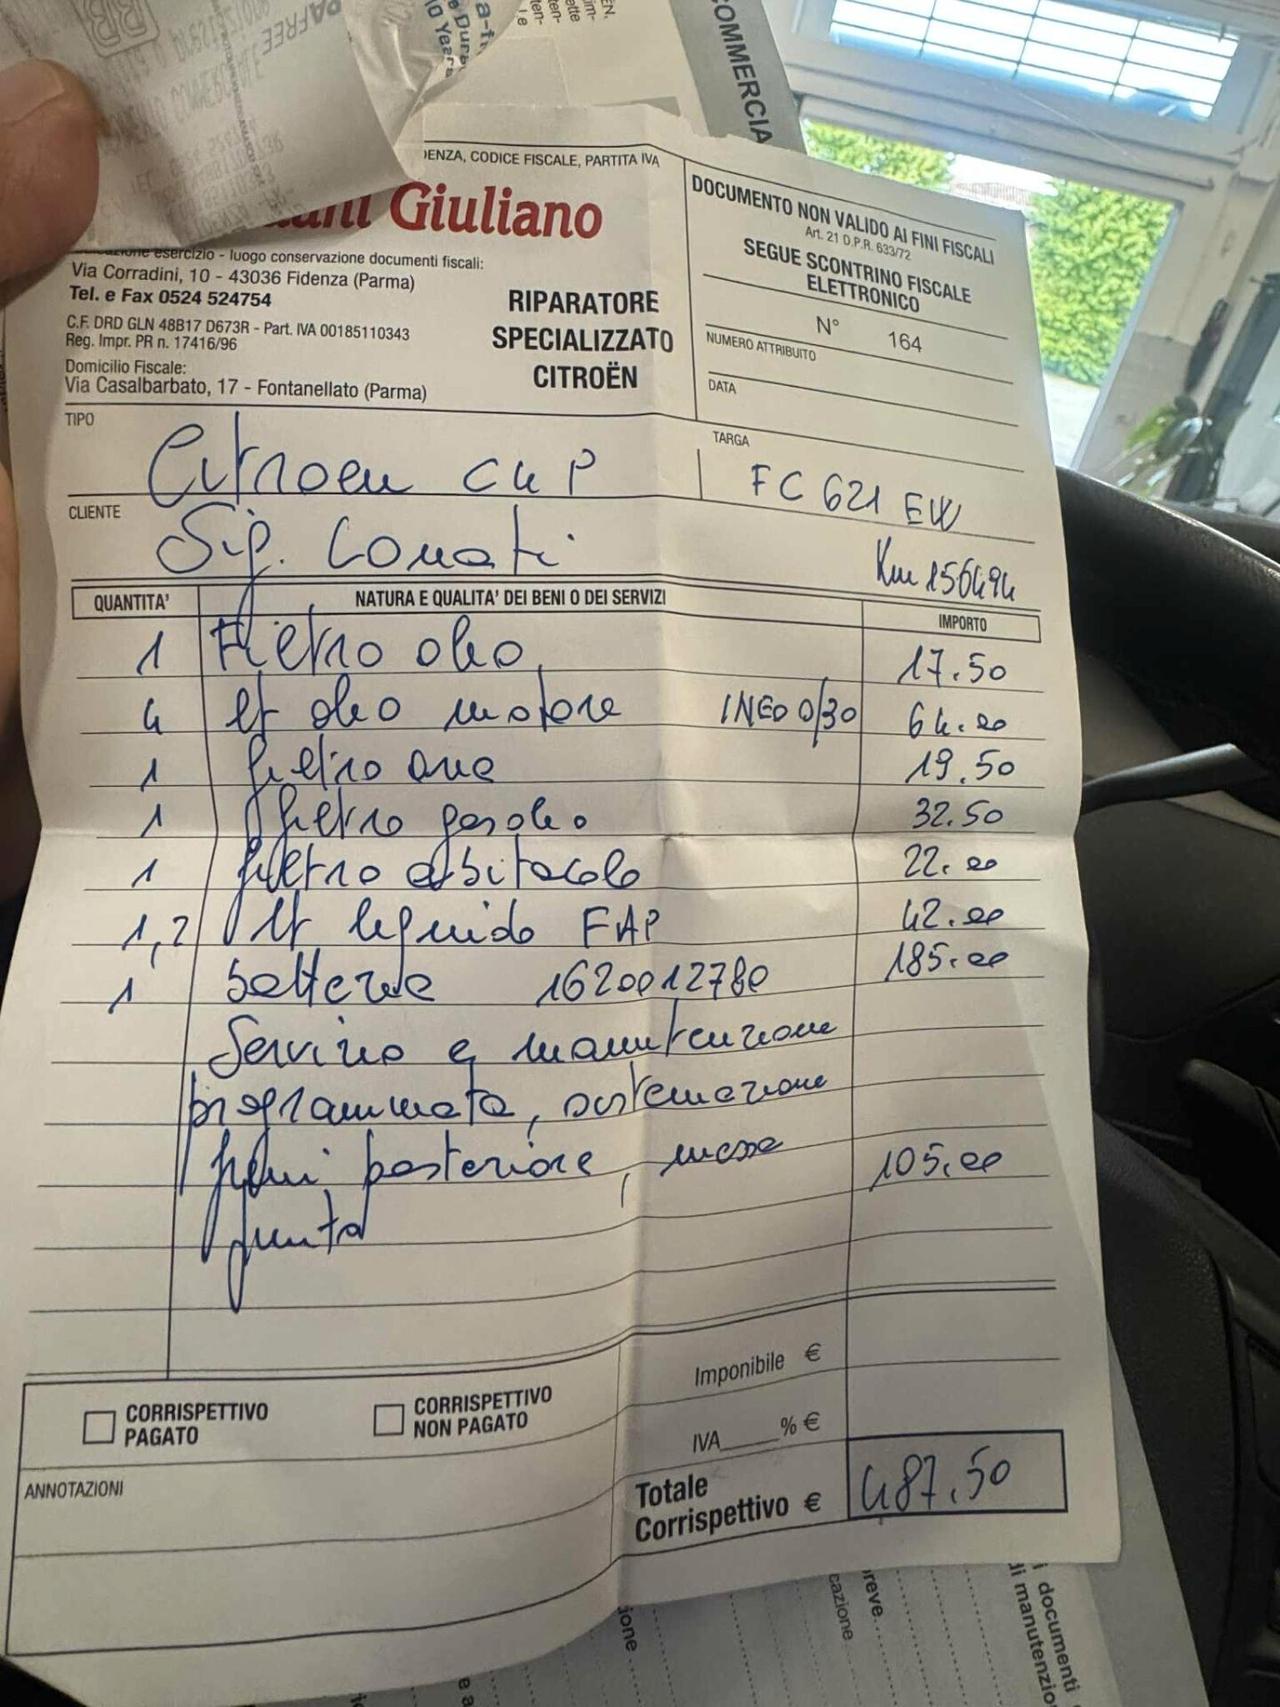 COMMERCIA
DENZA, CODICE FISCALE, PARTITA IVA
Giuliano
esercizio - luogo conservazione documenti fiscali:
Via Corradini, 10 - 43036 Fidenza (Parma)
Tel. e Fax 0524 524754
C.F. DRD GLN 48B17 D673R - Part. IVA 00185110343
Reg. Impr. PR n. 17416/96
Domicilio Fiscale:
Via Casalbarbato, 17 - Fontanellato (Parma)
RIPARATORE
SPECIALIZZATO
CITROËN
DOCUMENTO NON VALIDO AI FINI FISCALI
Art. 21 D.P.R. 633/72
SEGUE SCONTRINO FISCALE
ELETTRONICO
N° 164
NUMERO ATTRIBUITO
DATA
TIPO
Citroen
TARGA
FC 621 EW
CLIENTE
Sig.
Km 156494
QUANTITA' NATURA E QUALITA' DEI BENI O DEI SERVIZI IMPORTO
1 Filtro olio 17.50
4 lt olio motore INEO 0/30 64.00
1 filtro aria 19.50
1 filtro gasolio 32.50
1 filtro abitacolo 22.00
1,2 lt liquido FAP 42.00
1 batteria 1620012780 185.00
Servizio e manutenzione
programmata, sistemazione
freni posteriore, messa 105.00
punto
Imponibile €
CORRISPETTIVO PAGATO
CORRISPETTIVO NON PAGATO
IVA____% €
ANNOTAZIONI
Totale
Corrispettivo € 487.50
i documenti
di manutenzio